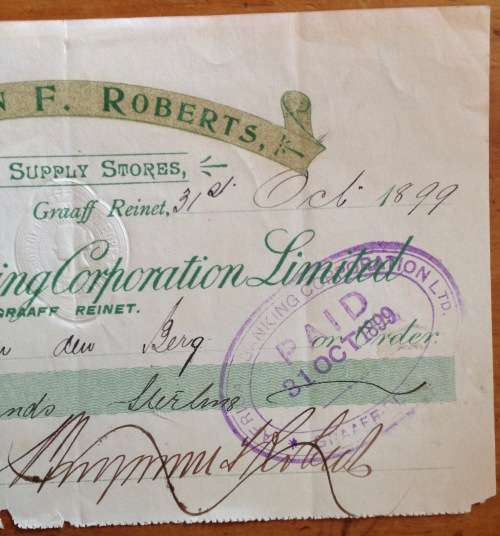 N F. ROBERTS,
SUPPLY STORES,
Graaff Reinet, 31st Oct 1899
ing Corporation Limited
GRAAFF REINET.
den Berg or Order.
nds Sterling
BANKING CORPORATION LTD.
PAID
31 OCT 1899
GRAAFF-